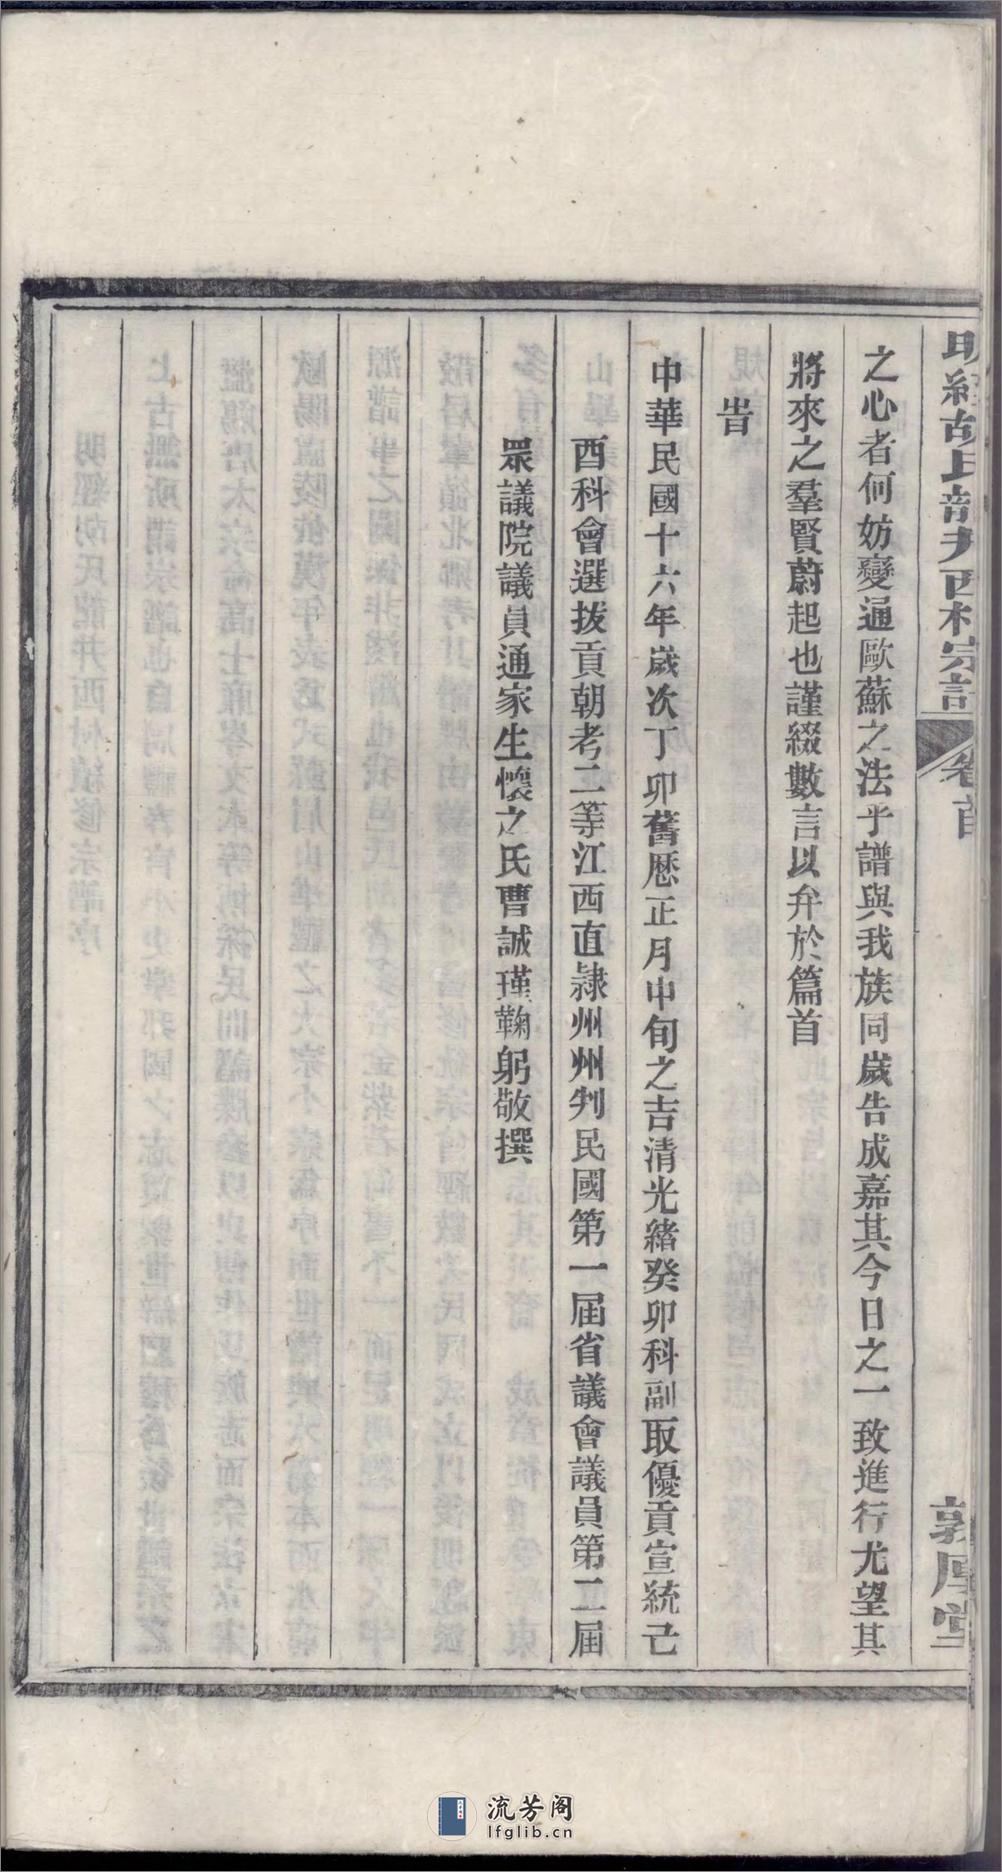 明經胡氏龍井西村宗譜 卷首 敦厚堂
之心者何妨變通歐蘇之法乎譜與我族同歲告成嘉其今日之一致進行尤望其
將來之羣賢蔚起也謹綴數言以弁於篇首
旹
中華民國十六年歲次丁卯舊曆正月中旬之吉清光緒癸卯科副取優貢宣統己
酉科會選拔貢朝考二等江西直隸州州判民國第一屆省議會議員第二屆
眾議院議員通家生懷之氏曹誠瑾鞠躬敬撰
流芳阁
lfglib.cn